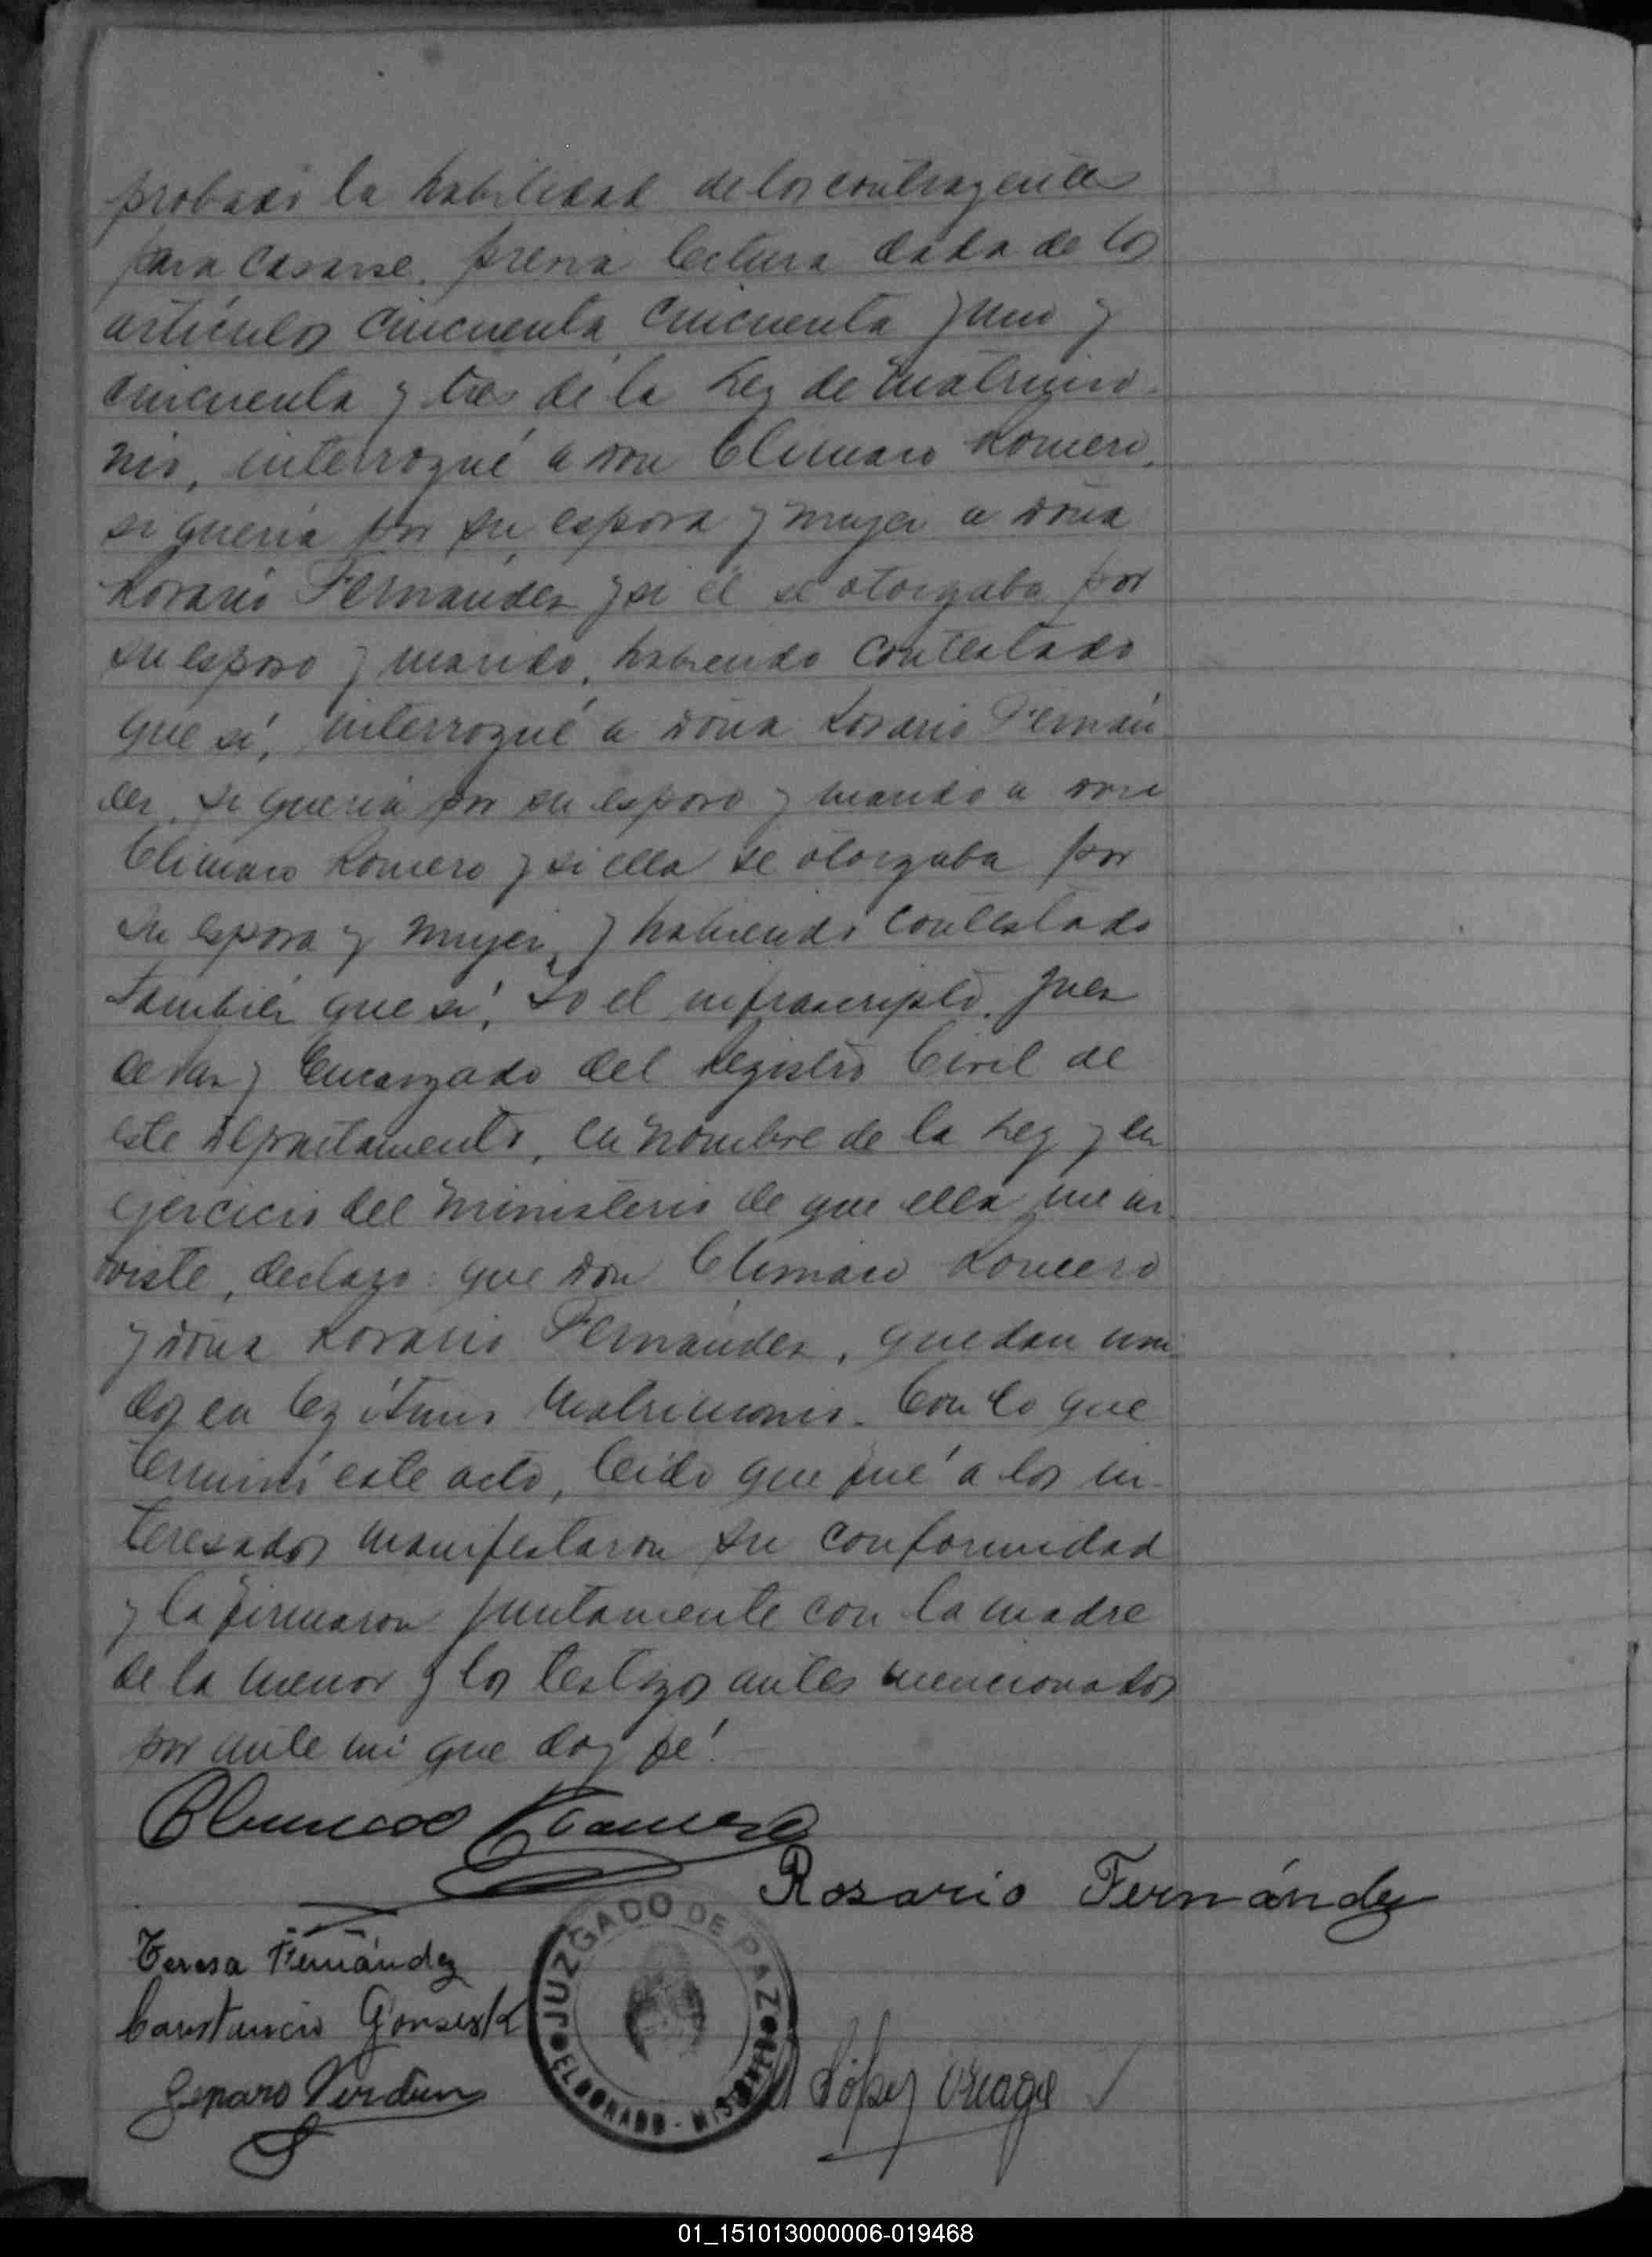 probado la habilidad de los contrayentes
para casarse, previa lectura dada de los
artículos cincuenta, cincuenta y uno y
cincuenta y tres de la Ley de Matrimo-
nio, interrogué a don Climaco Romero,
si quería por su esposa y mujer a doña
Rosario Fernández y si él se otorgaba por
su esposo y marido, habiendo contestado
que sí, interrogué a doña Rosario Fernán
dez, si quería por su esposo y marido a don
Climaco Romero y si ella se otorgaba por
su esposa y mujer, y habiendo contestado
también que sí, Yo el infrascripto, Juez
de Paz y Encargado del Registro Civil de
este Departamento, en nombre de la Ley y en
ejercicio del ministerio de que ella me in-
viste, declaro: que don Climaco Romero
y doña Rosario Fernández, quedan uni-
dos en legítimo Matrimonio. Con lo que
terminó este acto, leído que fué a los in-
teresados manifestaron su conformidad
y la firmaron juntamente con la madre
de la menor y los testigos antes mencionados
por ante mí que doy fé.
Climaco Romero
Rosario Fernández
Teresa Fernández
Constancio
Genaro Verdun
López
JUZGADO DE PAZ
ELDORADO - MISIONES
01_151013000006-019468